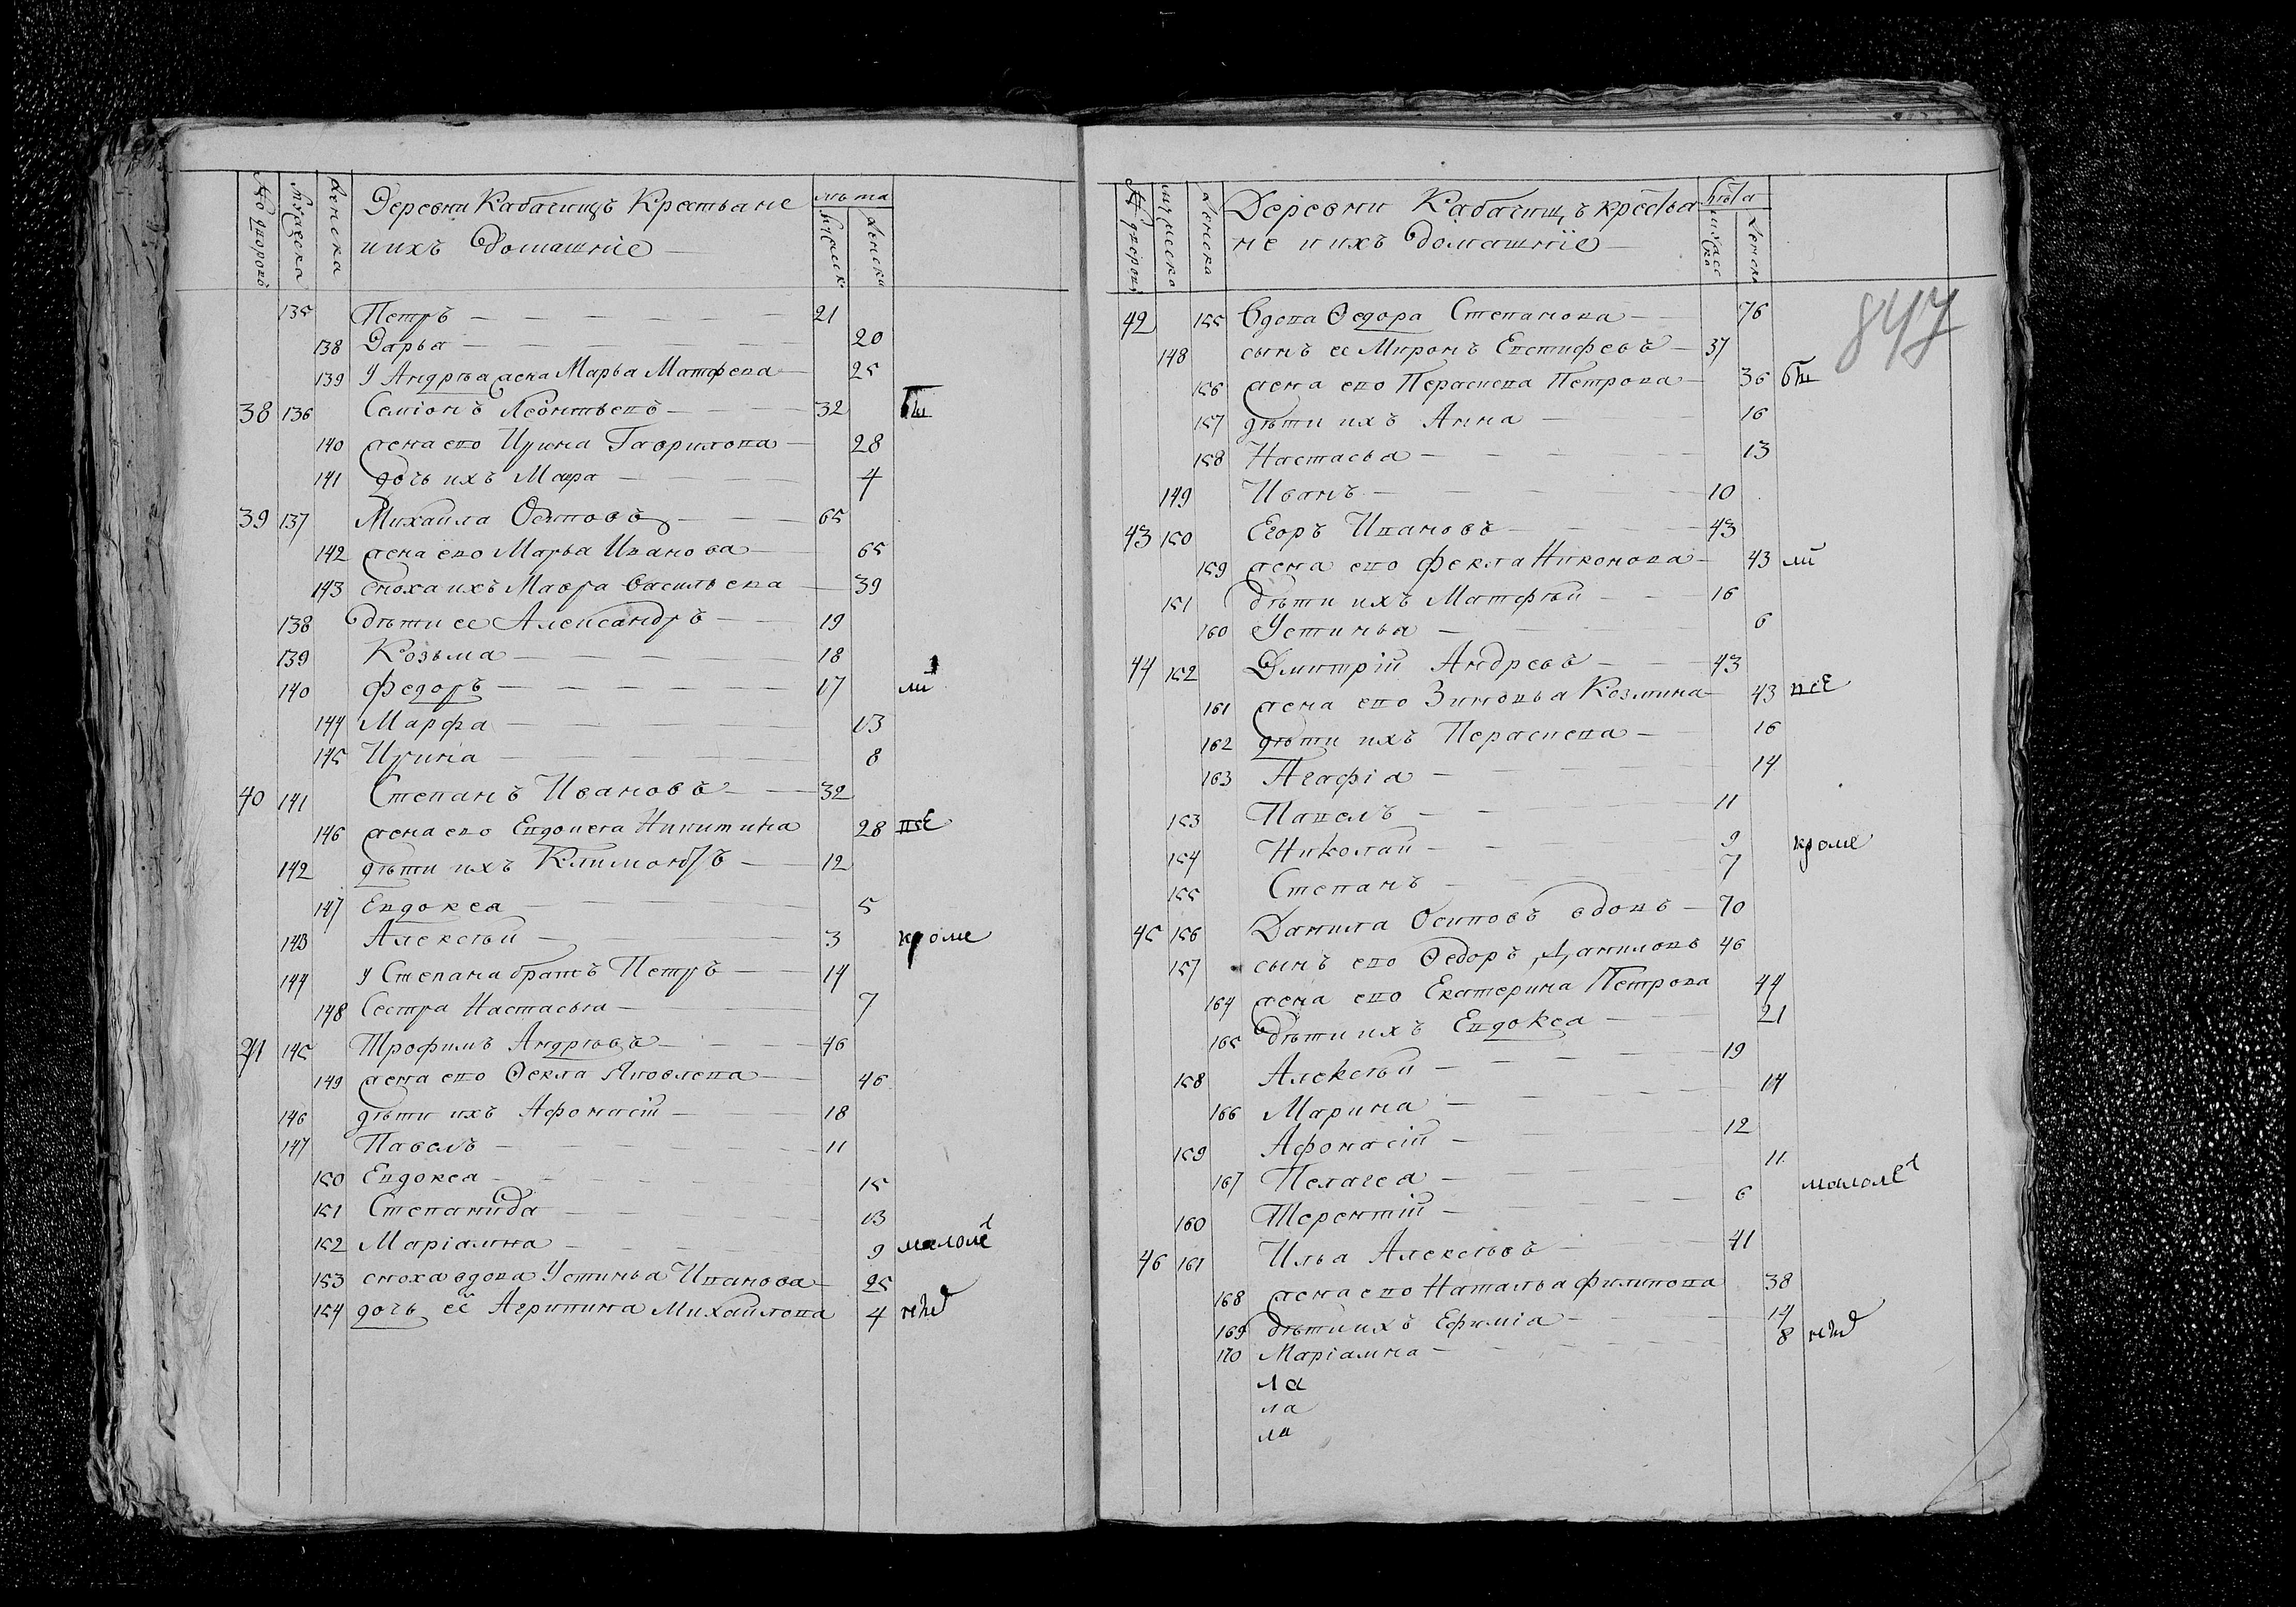 № дворовъ мужеска женска Деревни Кабалищъ Крестьяне лѣта
и ихъ домашніе мужеск женска
135 Петръ 21
138 Дарья 20
139 У Андрѣа жена Марья Матфева 25
38 136 Семіонъ Леонтьевъ 32 бы
140 жена ево Ирина Гаврилова 28
141 дочь ихъ Мавра 4
39 137 Михаила Осиповъ 65
142 жена ево Марья Иванова 65
143 сноха ихъ Мавра Васильева 39
138 дѣти ее Александръ 19
139 Козьма 18
140 Федоръ 17 ли
144 Марфа 13
145 Ирина 8
40 141 Степанъ Ивановъ 32
146 жена ево Евдокеа Никитина 28 все
142 дѣти ихъ Климонтъ 12
147 Евдокеа 5
143 Алексѣи 3 кроме
144 У Степана братъ Петръ 14
148 Сестра Настасья 7
41 145 Трофимъ Андрѣевъ 46
149 жена ево Ѳекла Яковлева 46
146 дѣти ихъ Афонасіи 18
147 Павелъ 11
150 Евдокеа 15
151 Степанида 13
152 Маріамна 9 малолѣ
153 сноха вдова Устинья Иванова 25
154 дочь ее Агрипина Михаилова 4
№ дворовъ мужеска женска Деревни Кабалищъ крестья лѣта
не и ихъ домашніе мужеска женска
847
42 155 Вдова Ѳедора Степанова 76
148 сынъ ее Миронъ Евстифевъ 37
156 жена ево Параскева Петрова 36 бы
157 дѣти ихъ Анна 16
158 Настасья 13
149 Иванъ 10
43 150 Егоръ Ивановъ 43
159 жена ево Фекла Никонова 43 ли
151 дѣти ихъ Матфѣи 16
160 Устинья 6
44 152 Дмитріи Андревъ 43
161 жена ево Зиновья Козмина 43 все
162 дѣти ихъ Параскева 16
163 Агафіа 14
153 Павелъ 11
154 Николаи 9 кроме
155 Степанъ 7
45 156 Данила Осиповъ вдовъ 70
157 сынъ ево Ѳедоръ Даниловъ 46
164 жена ево Екатерина Петрова 44
165 дѣти ихъ Евдокеа 21
158 Алексѣи 19
166 Марина 14
159 Афонасіи 12
167 Пелагеа 11
160 Терентіи 6 малолѣ
46 161 Илья Алексѣевъ 41
168 жена ево Наталья Филипова 38
169 дѣти ихъ Ефиміа 14
170 Маріамна 8
ла
ла
ла